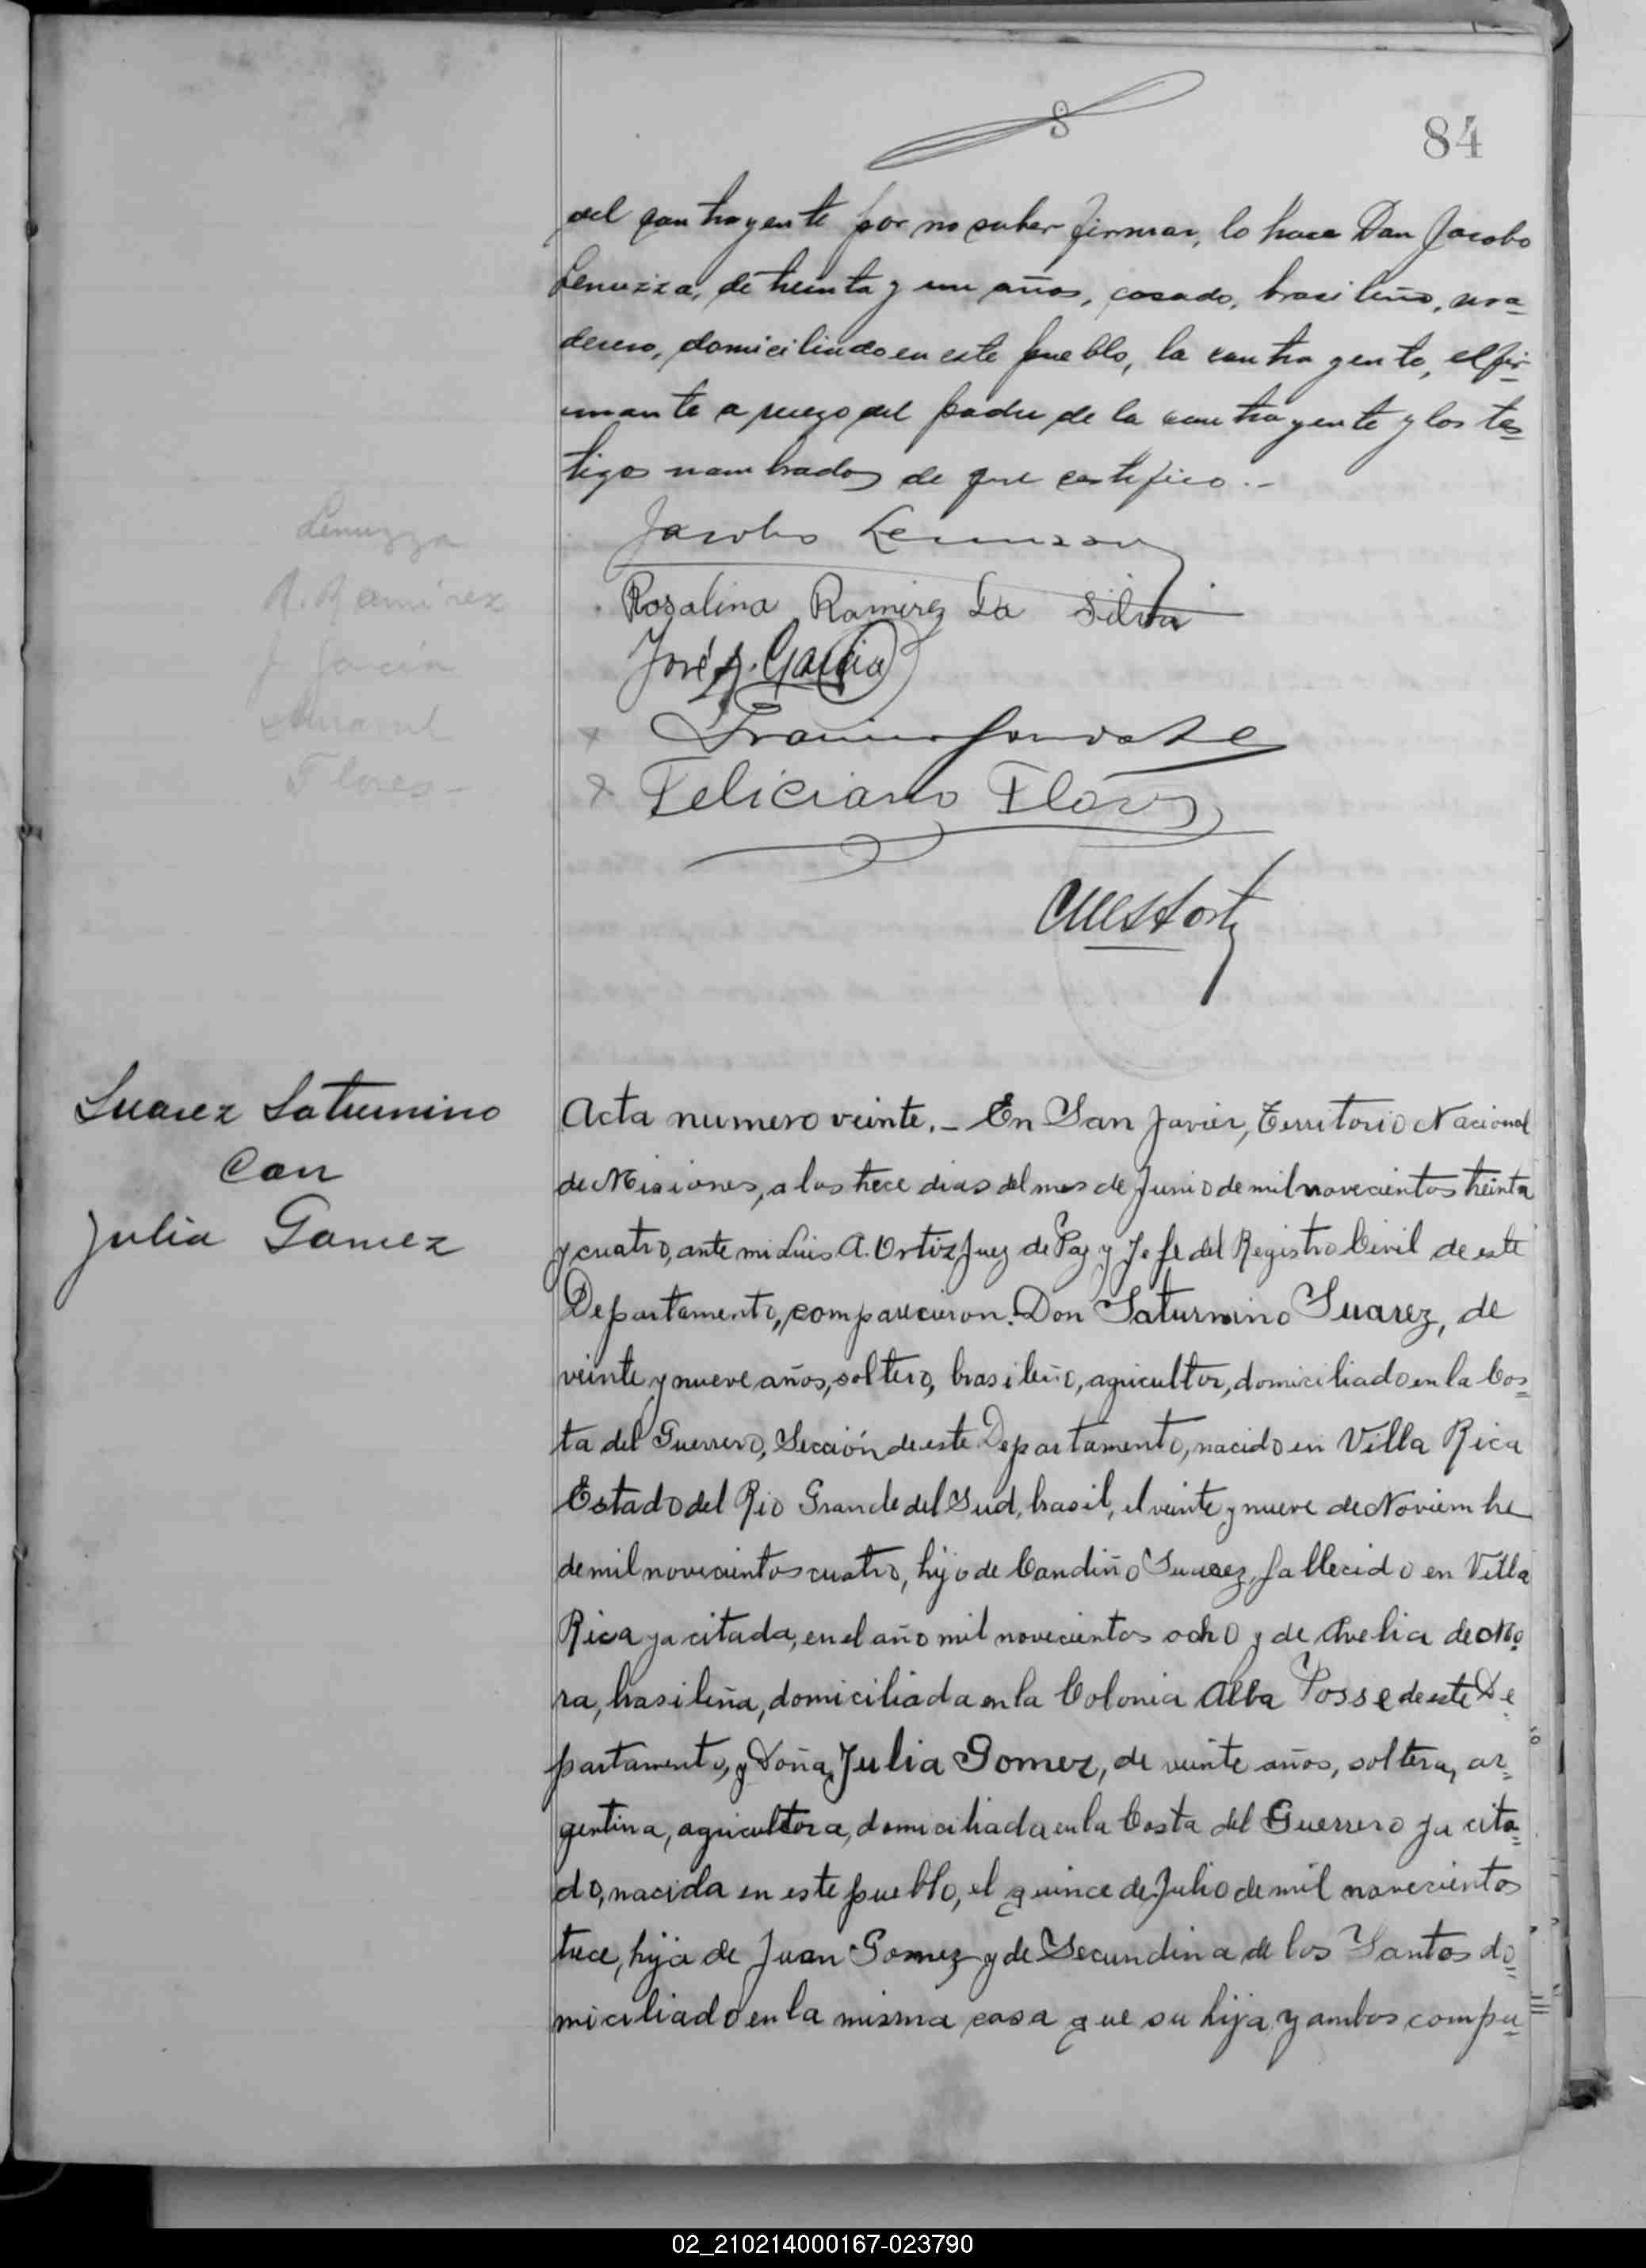 8
84
del contrayente por no saber firmar, lo hace Don Jacobo
Lenuzza, de treinta y un años, casado, brasileño,
domiciliado en este pueblo, la contrayente, el fir-
mante a ruego del padre de la contrayente y los tes-
tigos nombrados de que certifico.-
Lenuzza
Jacobo Lenuzza
R. Ramirez
Rosalina Ramirez Da Silva
J. Garcia
José A. Garcia
Flores-
Feliciano Flores
Suarez Saturnino
Con
Julia Gomez
Acta numero veinte.- En San Javier, Territorio Nacional
de Misiones, a los trece dias del mes de Junio de mil novecientos treinta
y cuatro, ante mi Luis A. Ortiz Juez de Paz y Jefe del Registro Civil de este
Departamento, comparecieron: Don Saturnino Suarez, de
veinte y nueve años, soltero, brasileño, agricultor, domiciliado en la Cos=
ta del Guerrero, Sección de este Departamento, nacido en Villa Rica
Estado del Rio Grande del Sud, brasil, el veinte y nueve de Noviembre
de mil novecientos cuatro, hijo de Candiño Suarez, fallecido en Villa
Rica ya citada, en el año mil novecientos ocho y de Avelia de Mo
ra, brasileña, domiciliada en la Colonia Alba Posse de este De
partamento, y Doña Julia Gomez, de veinte años, soltera, ar=
gentina, agricultora, domiciliada en la Costa del Guerrero ya cita=
do, nacida en este pueblo, el quince de Julio de mil novecientos
trece, hija de Juan Gomez y de Secundina de los Santos do=
miciliado en la misma casa que su hija y ambos compa=
02_210214000167-023790